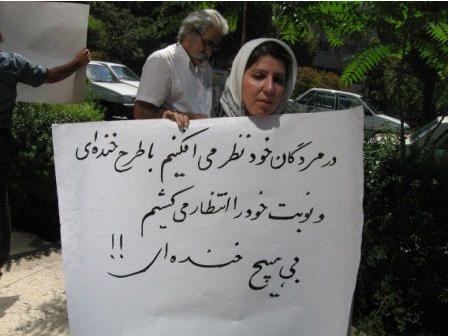 در مردگان خود نظر می افکنیم با طرح خنده ای
و نوبت خود را انتظار می کشیم
بی هیچ خنده ای !!